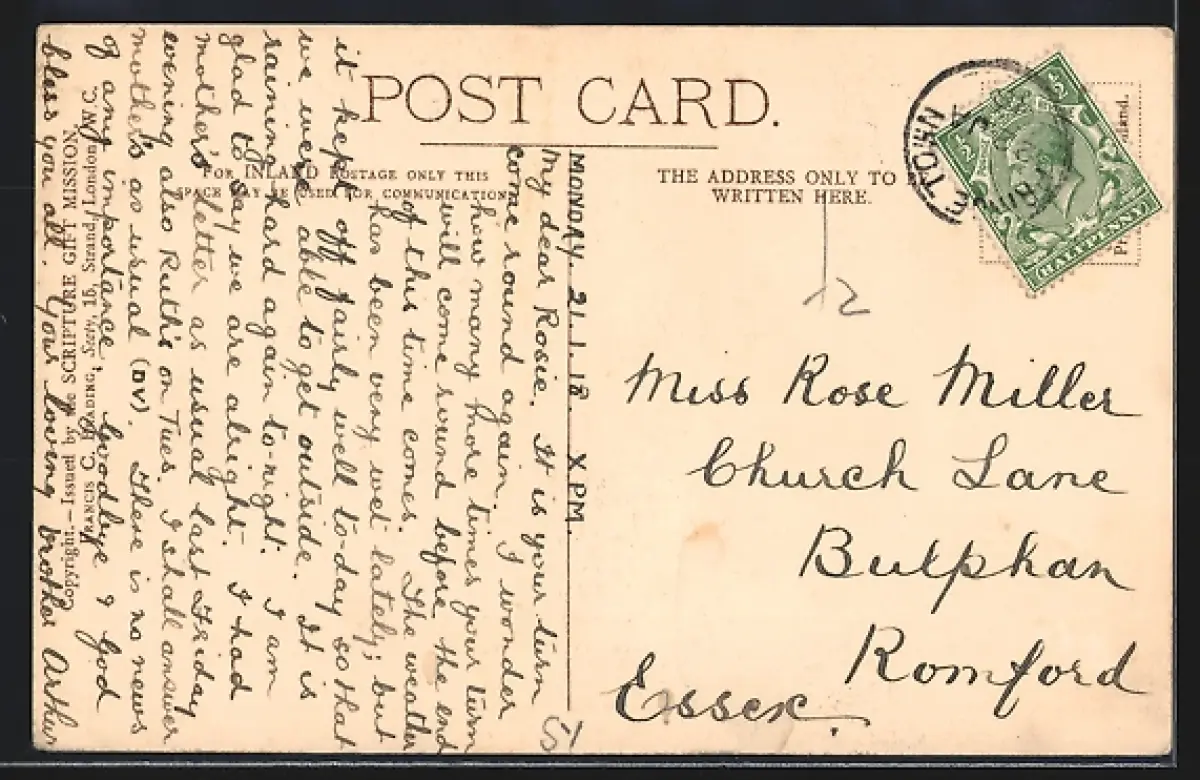 POST CARD.
FOR INLAND POSTAGE ONLY THIS
SPACE MAY BE USED FOR COMMUNICATION
THE ADDRESS ONLY TO
WRITTEN HERE.
HALFPENNY
MONDAY. 21.1.18. X PM.
My dear Rosie. It is your turn
come round again. I wonder
how many more times your turn
will come round before the end
of this time comes. The weather
has been very wet lately; but
it kept off fairly well to-day so that
we were able to get outside. It is
raining hard again to-night. I am
glad to say we are alright. I had
mother's letter as usual last Friday
evening also Ruth's on Tues. I shall answer
mother's as usual (DV). There is no news
of any importance. Goodbye & God
bless you all. Your loving brother Arthur
Copyright.—Issued by the SCRIPTURE GIFT MISSION,
FRANCIS C. BRADING, Secty, 15, Strand, London, W.C.
Miss Rose Miller
Church Lane
Bulphan
Romford
Essex.